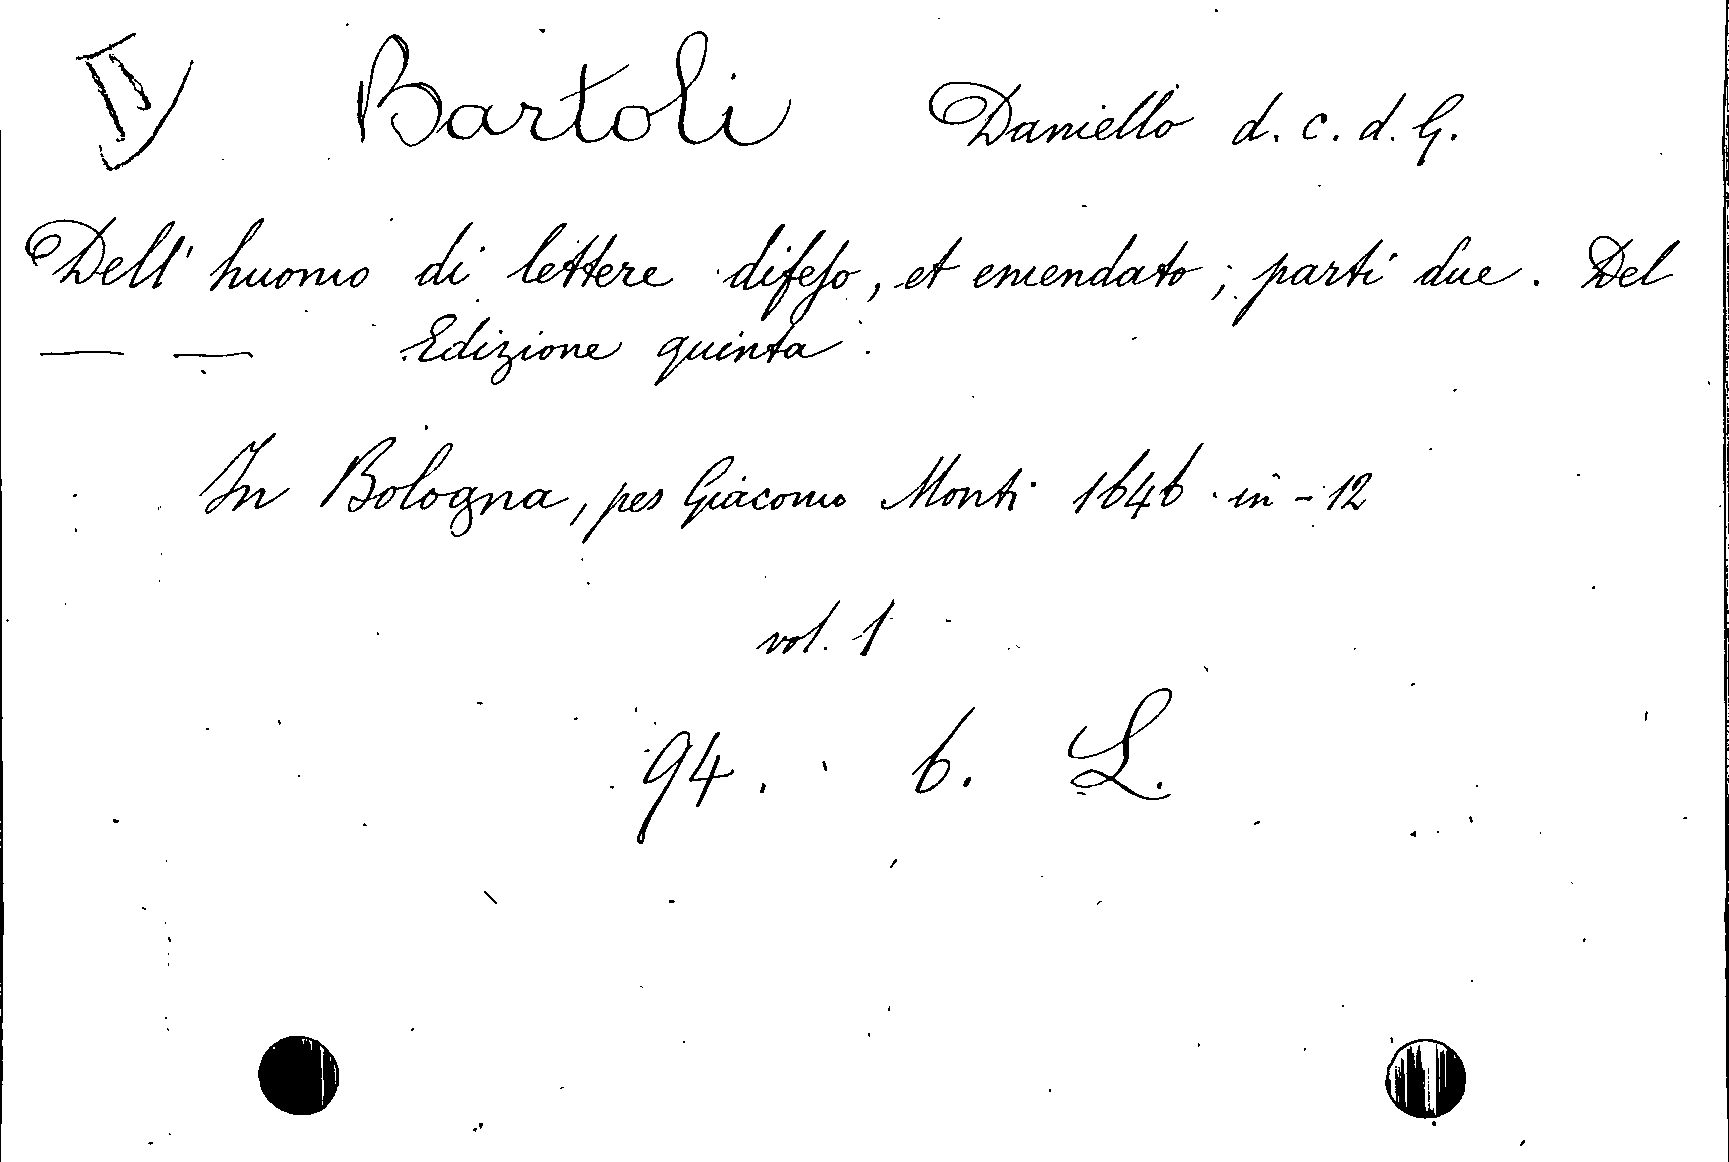 Bartoli Daniello d. c. d. G.
Dell' huomo di lettere difeso, et emendato; parti due. Del
— — Edizione quinta.
In Bologna, per Giacomo Monti 1646. in - 12
vol. 1
94. 6. L.